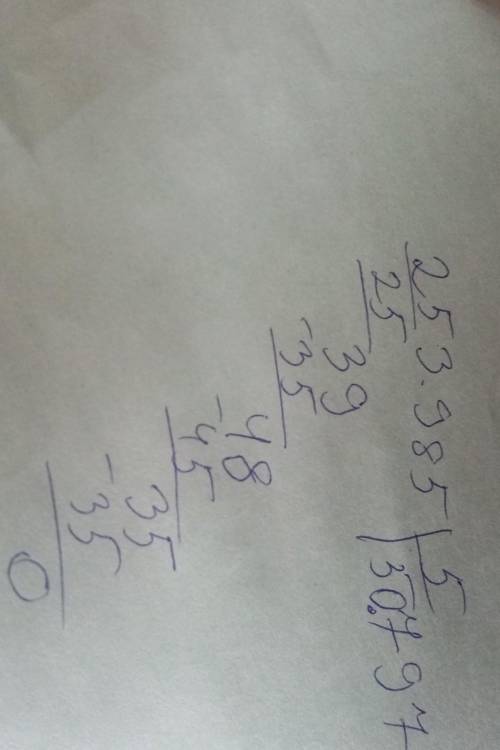 253.985 | 5
25 | 50.797
39
-35
48
-45
35
-35
0